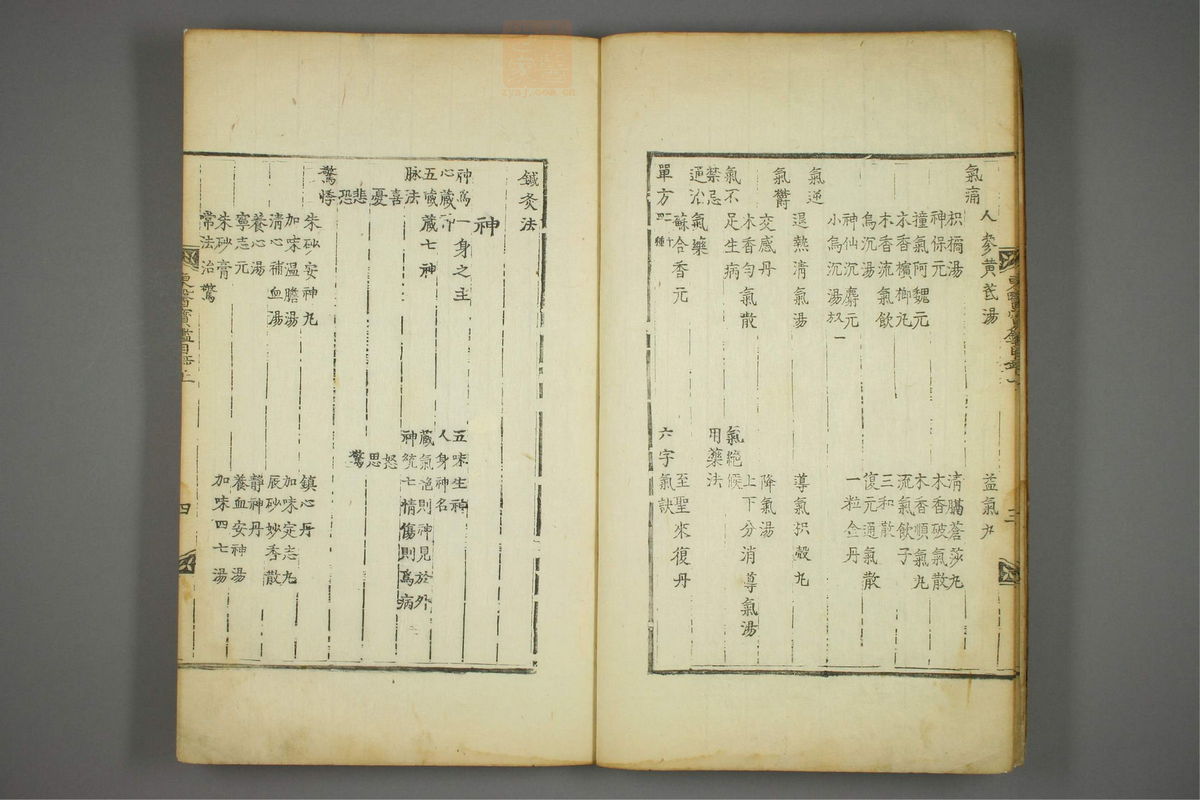 人參黃芪湯 益氣丸
氣痛
枳橘湯 清膈蒼莎丸
神保元 木香破氣散
撞氣阿魏元 木香順氣丸
木香檳榔丸 流氣飲子
木香流氣飲 三和散
烏沉湯 復元通氣散
神仙沉麝元 一粒金丹
小烏沉湯
氣逆
退熱清氣湯 導氣枳殼丸
氣鬱
交感丹 降氣湯
木香勻氣散 上下分消導氣湯
氣不足生病 氣絶候
禁忌 用藥法
通治氣藥
蘇合香元 至聖來復丹
單方 六字氣訣
三
東醫寶鑑目錄上
鍼灸法
神
神爲一身之主 五味生神
心藏神 人身神名
五藏藏七神 藏氣絶則神見於外
脉法 神統七情傷則爲病
喜 怒
憂 思
悲 驚
恐
驚悸
朱砂安神丸 鎮心丹
加味温膽湯 加味定志丸
清心補血湯 辰砂妙香散
養心湯 靜神丹
寧志元 養血安神湯
朱砂膏 加味四七湯
常法治驚
四
東醫寶鑑目錄上